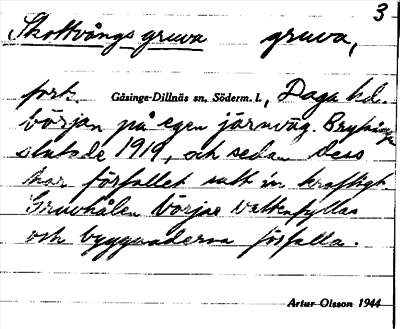 3
Skottvångs gruva gruva,
forts. Gåsinge-Dillnäs sn, Söderm. l., Daga hd.
början på egen järnväg. Brytningen
slutade 1919, och sedan dess
har förfallet satt in kraftigt
Gruvhålen börjar vattenfyllas
och byggnaderna förfalla.
Artur Olsson 1944